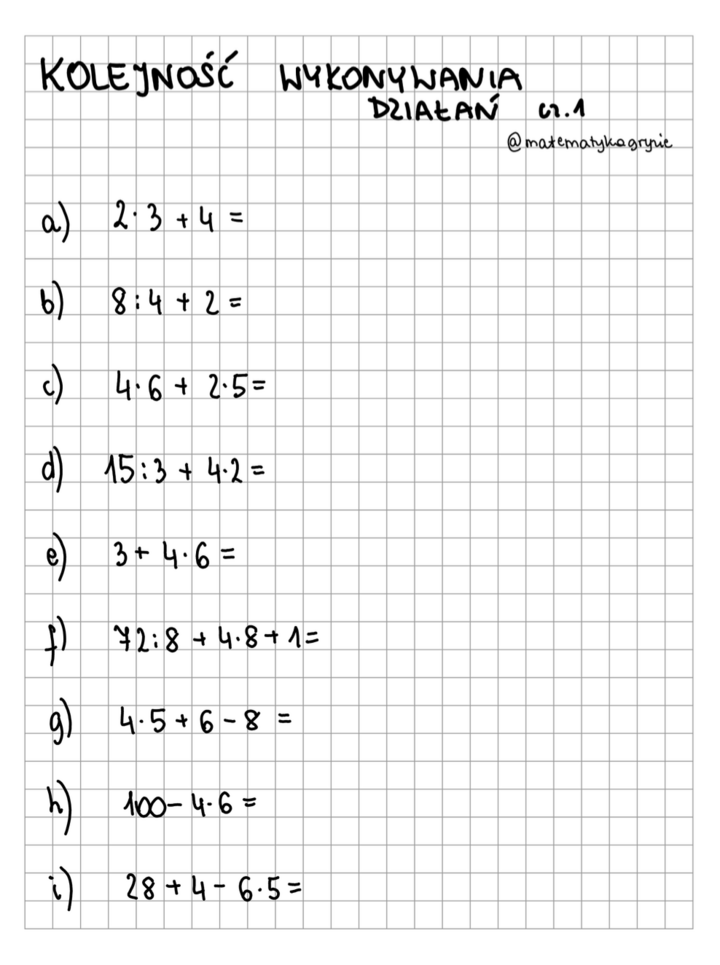 KOLEJNOŚĆ WYKONYWANIA
DZIAŁAŃ cz.1
@matematykagryzie
a) 2·3 + 4 =
b) 8:4 + 2 =
c) 4·6 + 2·5=
d) 15:3 + 4·2 =
e) 3+ 4·6 =
f) 72:8 + 4·8+ 1=
g) 4·5 + 6 - 8 =
h) 100- 4·6 =
i) 28 + 4 - 6·5 =